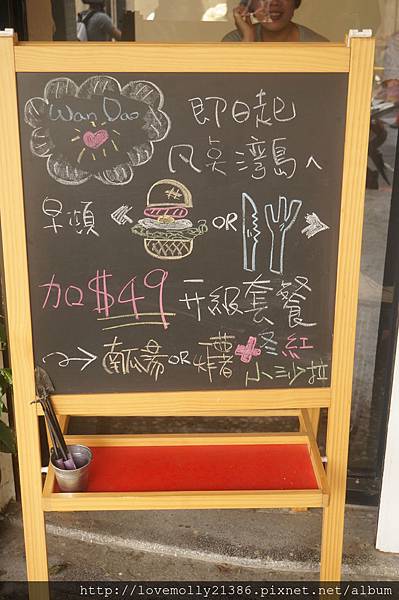 Wan Dao
即日起
凡点湾島へ
早頓
OR
加$49 升級套餐
南瓜湯OR炸薯+冬紅
小沙拉
http://lovemolly21386.pixnet.net/album